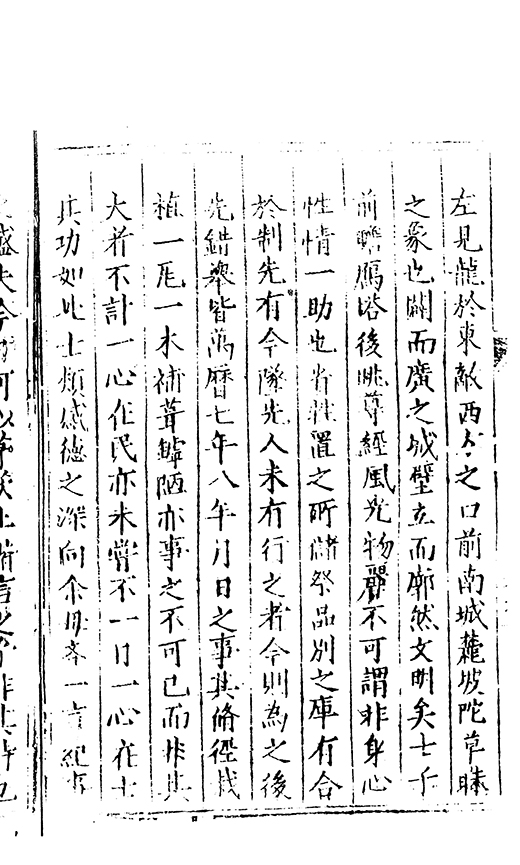 左見龍於東敵西台之口前南城蘢坡陀草昧
之象也闢而廣之城壁立而廓然文明矣士子
前瞻鴈塔後眺尊經風光物麗不可謂非身心
性情一助也省牲置之所儲祭品別之庫有合
於制先有今隊先人未有行之者今則為之後
先錯舉皆萬曆七年八年月日之事其脩徑栽
植一瓦一木補葺罅陋亦事之不可已而非其
大者不計一心在民亦未嘗不一日一心在士
其功如此士類感德之深向余丐
一言紀事
盛夫今
可以